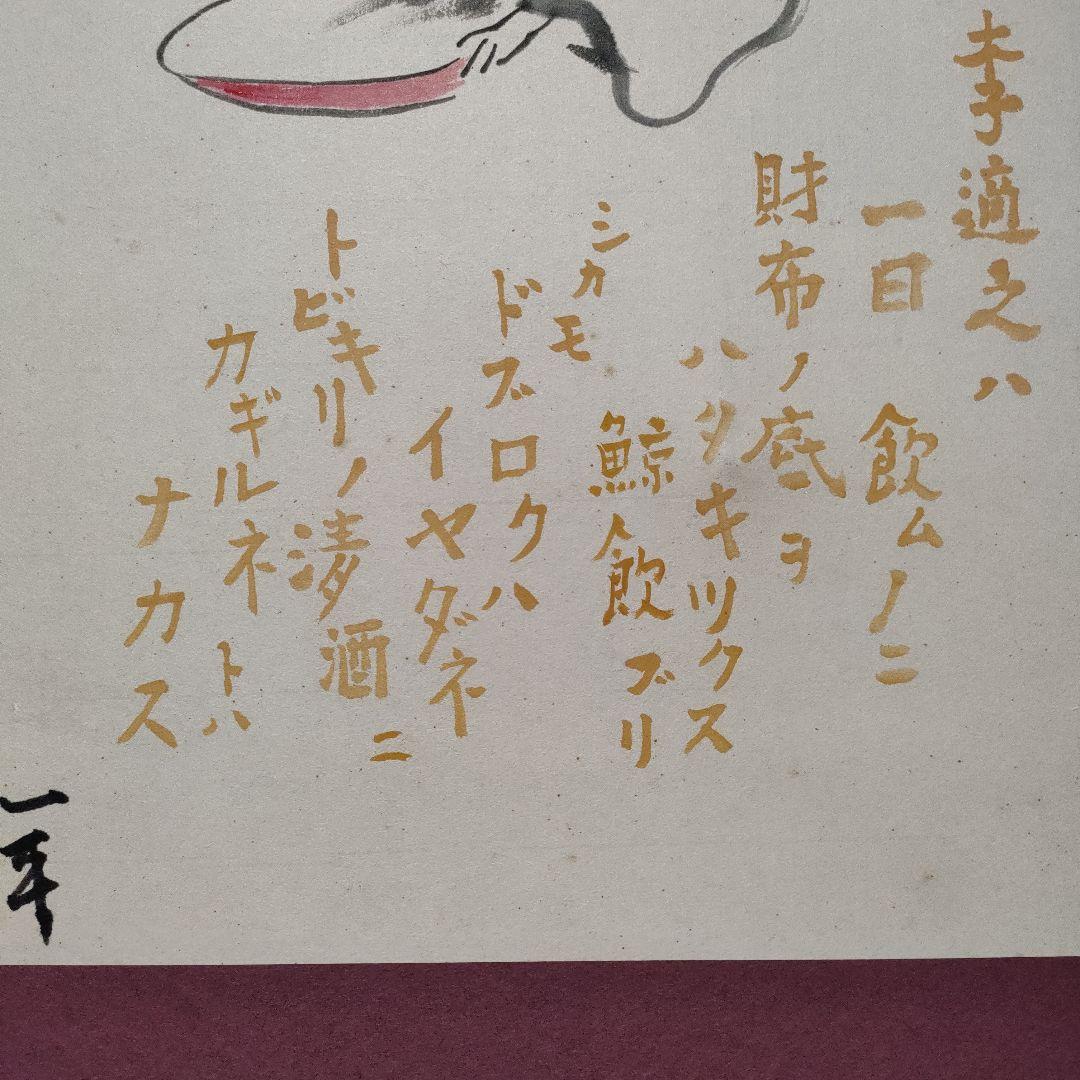 李適之ハ
一日 飲ムノニ
財布ノ底ヲ
ハタキツクス
シカモ
鯨飲ブリ
ドブロクハ
イヤダネ
トビキリノ清酒ニ
カギルネ
トハ
ナカス
一平